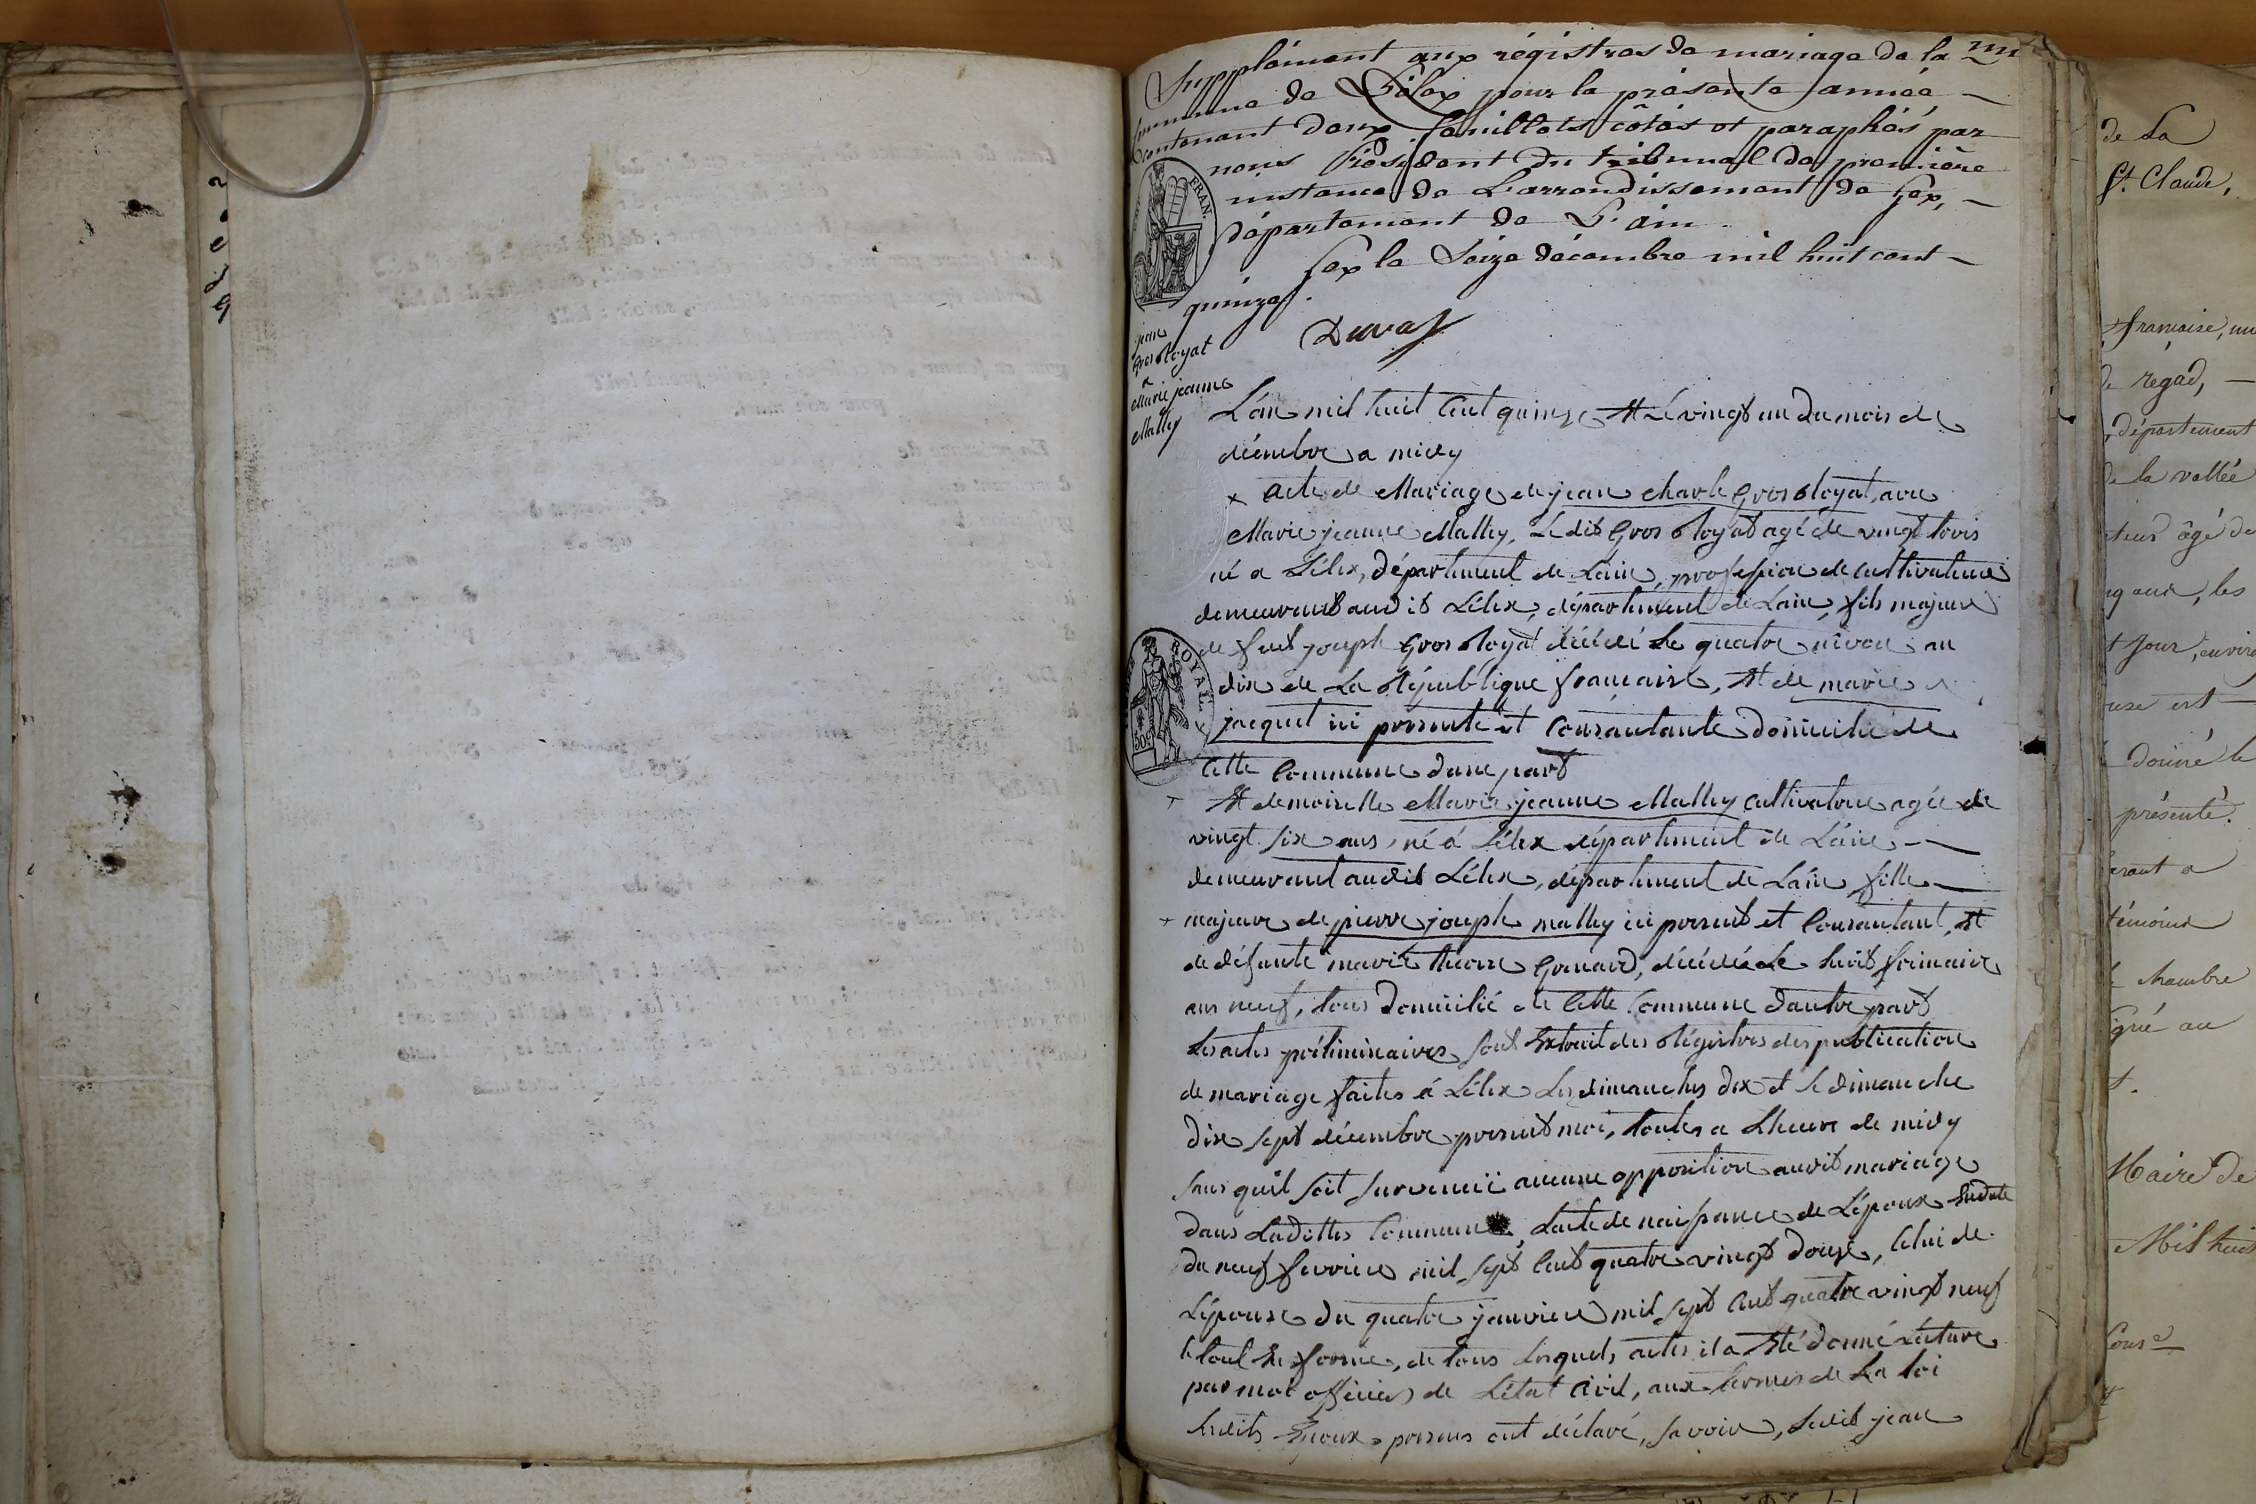 Supplément aux régistres de mariage de la
Commune de Lélex pour la présente année —
contenant deux feuillets côtés et paraphés par
nous Président du tribunal de première
instance de L'arrondissement de Gex, —
département de L'ain
Gex le Seize décembre mil huit cent —
quinze.
Duval
FRAN.
jean
gros Royat
a
Marie jeanne
Mathy
L'an mil huit Cent quinze Et Le vingt un du mois de
décembre a midy
x acte de Mariage de jean charle Gros Royat, avec
Marie jeanne Mathy, Le dit Gros Royat agé de vingt trois
né a Lélex, département de Lain, profession de cultivateur
demeurant audit Lélex, département de Lain, fils majeur
de feut joseph Gros Royat décédé Le quatre nivose an
dix de La République francaise, Et de marie
jacquet ici presente et Consantante domicilié de
Cette Commune dune part
ROYAL
50c
+ Et demoiselle Marie jeanne Mathy cultivatrice agée de
vingt six ans, né á Lélex département de Láin —
demeurant audit Lélex, département de Lain fille —
+ majeure de pierre joseph mathy ici present et Consantant, Et
de défunte marie therese Grenard, décédée Le huit frimaire
an neuf, tous domicilié de Cette Commune dautre part
Les actes préliminaires sont Extrait des Régistres des publication
de mariage faites á Lélex Les dimanches dix et Le dimanche
dix sept décembre present mois, toutes a Lheure de midy
sans quil soit survenuë aucune opposition audit mariage
dans Laditte Commune, Lacte de naissance de Lépoux Endate
du neuf fevrier mil sept Cent quatre vingt douze, Celui de
Lépouse du quatre janvier mil sept Cent quatre vingt neuf
le tout En forme, de tous Lesquels actes il a Eté donné Lecture
par moi officier de Létat Civil, aux termes de La loi
Lesdits Epoux presens ont déclaré, savoir, Ledit jean
de La
St. Claude,
française, un
de régad, —
département
de la vallée
teur âgé de
ans, les
t jour, envir
use est —
donné le
présenté.
témoins
chambre
gné au
Maire de
Mil huit